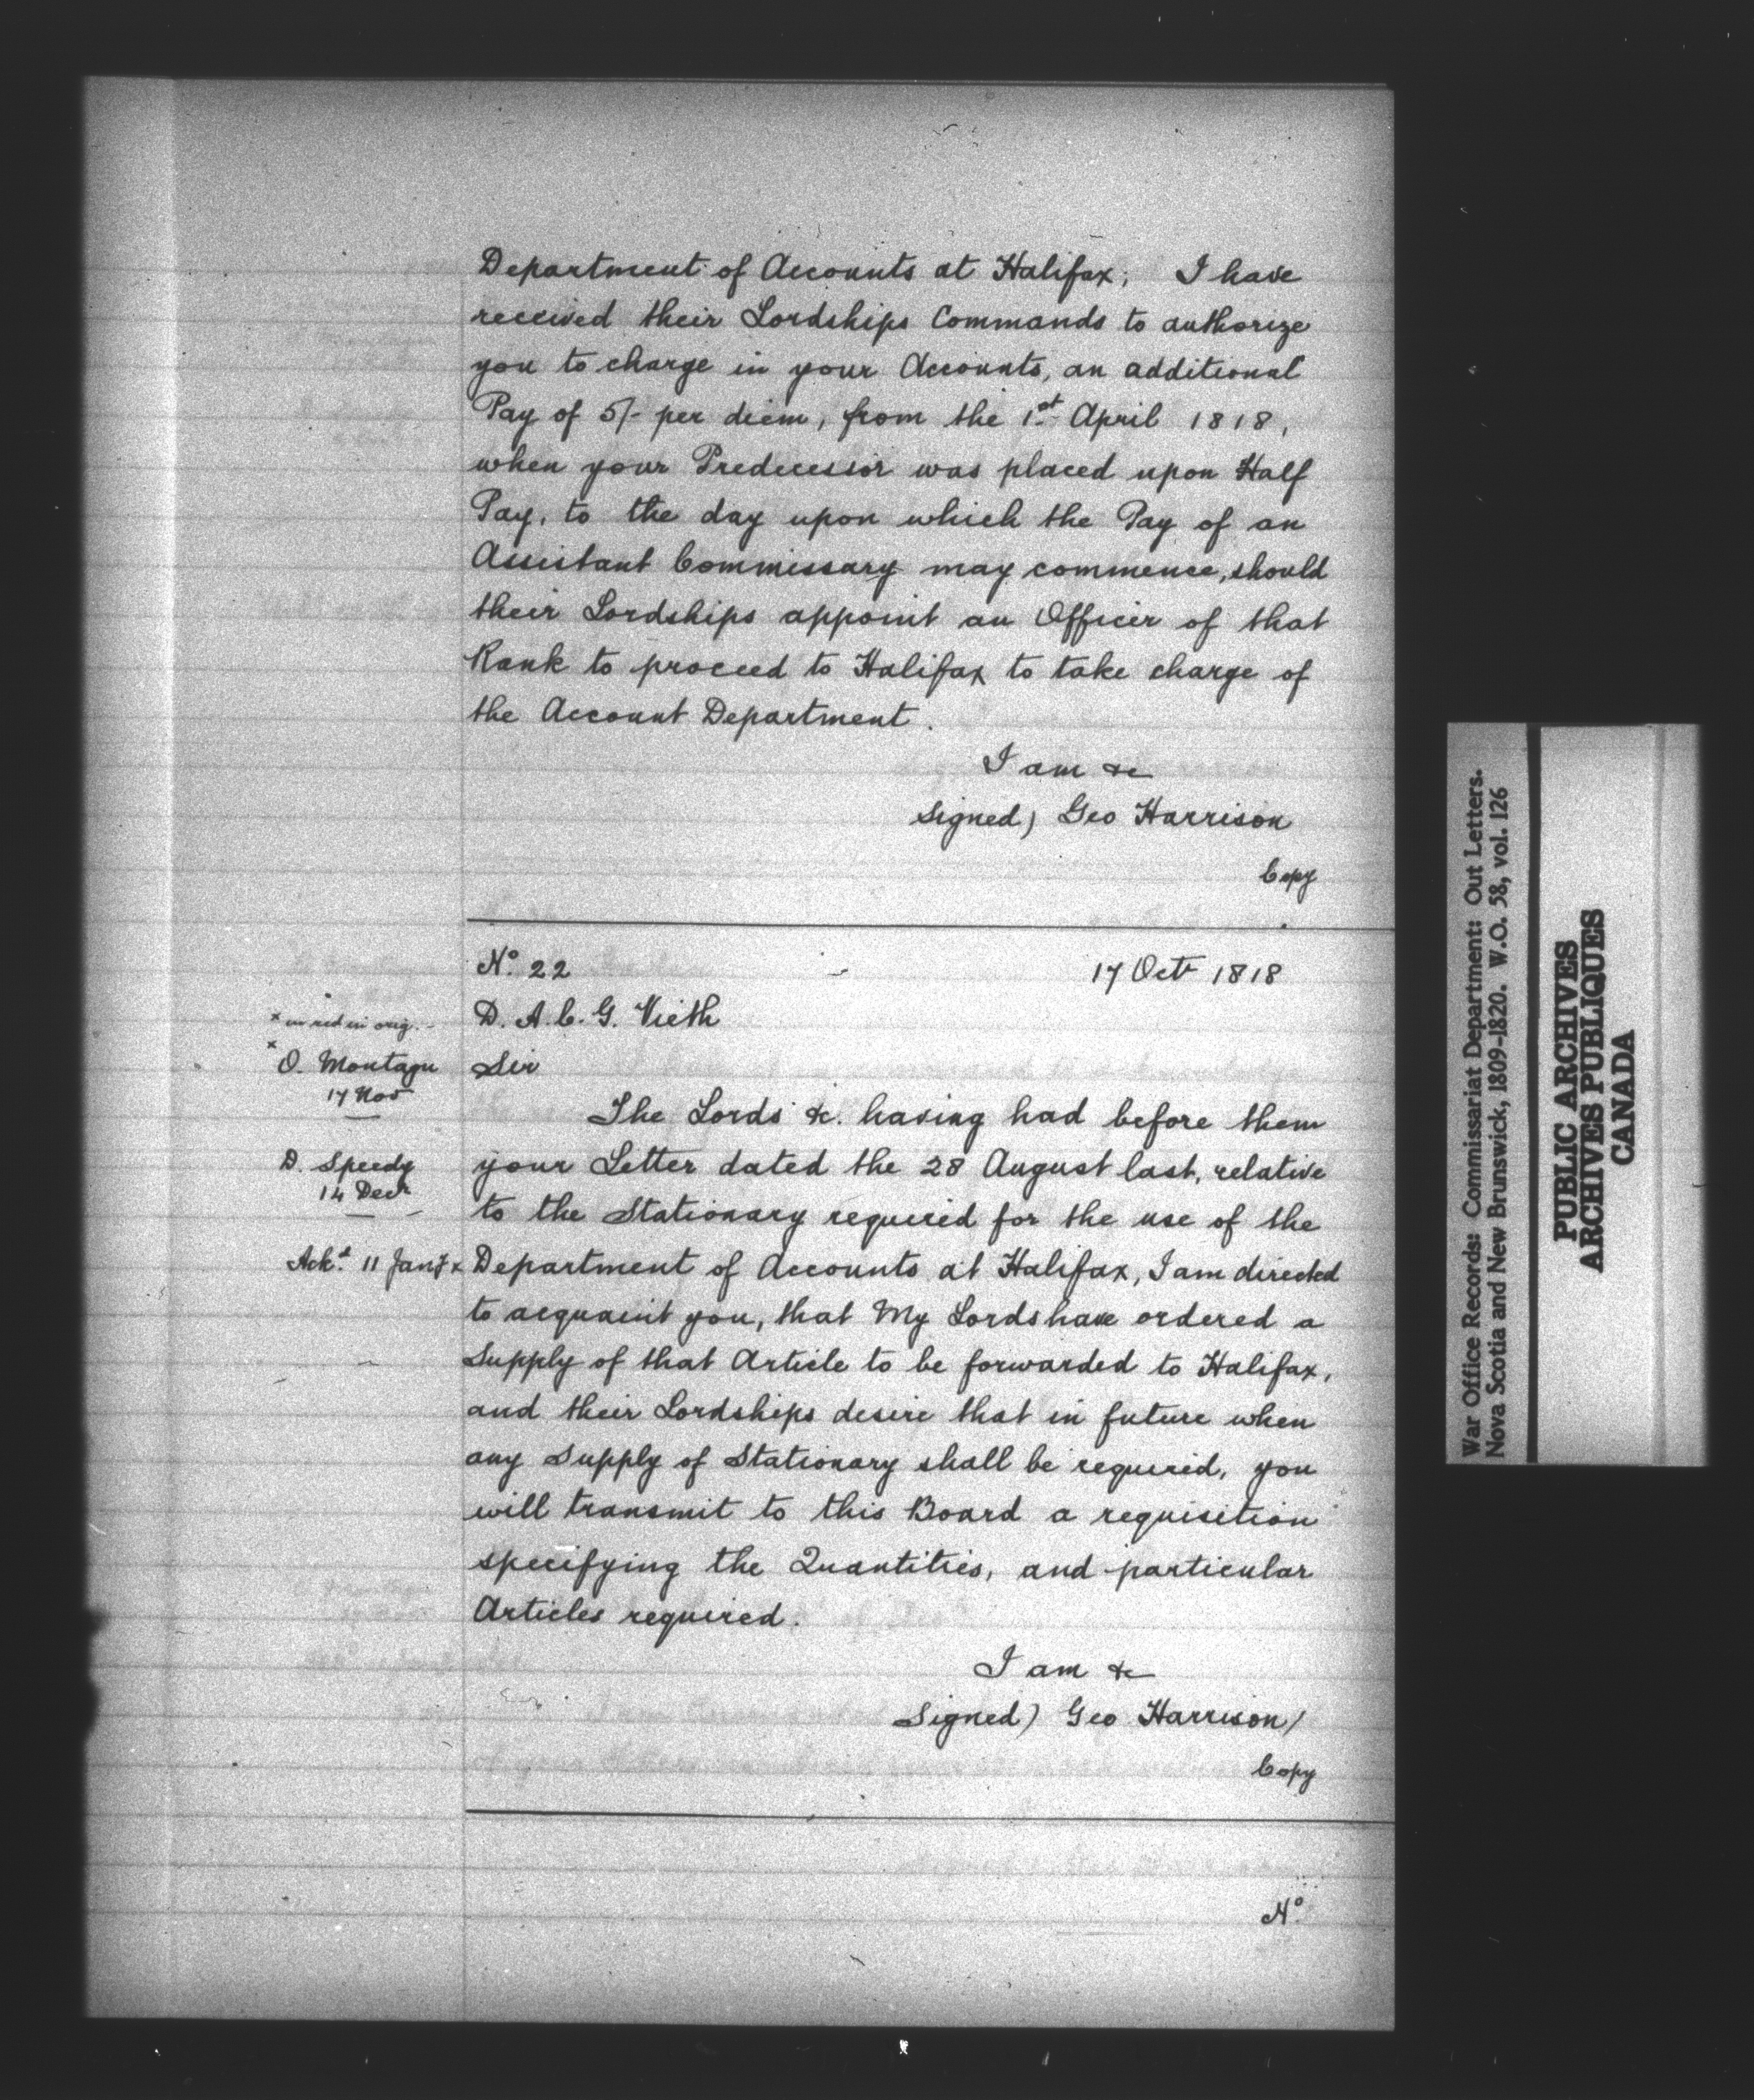 Department of Accounts at Halifax; I have
received their Lordships Commands to authorize
you to charge in your Accounts, an additional
Pay of 5/- per diem, from the 1st April 1818,
when your Predecessor was placed upon Half
Pay, to the day upon which the Pay of an
Assistant Commissary may commence, should
their Lordships appoint an Officer of that
Rank to proceed to Halifax to take charge of
the Account Department.
I am &c
Signed) Geo Harrison
Copy
No. 22 17 Octr 1818
D. A. C. G. Vieth
x in red in orig.
x
O. Montagu
17 Nov
D. Speedy
14 Decr
Ackd 11 Jany x
Sir
The Lords &c. having had before them
your Letter dated the 28 August last, relative
to the Stationary required for the use of the
Department of Accounts at Halifax, I am directed
to acquaint you, that My Lords have ordered a
Supply of that Article to be forwarded to Halifax,
and their Lordships desire that in future when
any Supply of Stationary shall be required, you
will transmit to this Board a requisition
specifying the Quantities, and particular
Articles required.
I am &c
Signed) Geo Harrison/
Copy
No
War Office Records: Commissariat Department: Out Letters.
Nova Scotia and New Brunswick, 1809-1820. W.O. 58, vol. 126
PUBLIC ARCHIVES
ARCHIVES PUBLIQUES
CANADA